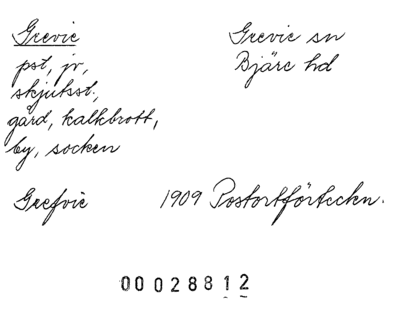 Grevie
Grevie sn
pst, jv,
Bjäre hd
skjutsst.,
gård, kalkbrott,
by, socken
Grefvie
1909 Postortförteckn.
00028812